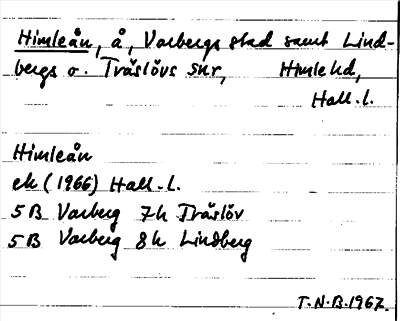 Himleån, å, Varbergs stad samt Lind-
bergs o. Träslövs snr, Himle hd,
Hall. l.
Himleån
ek (1966) Hall. l.
5B Varberg 7h Träslöv
5B Varberg 8h Lindberg
T.N.B.1967.